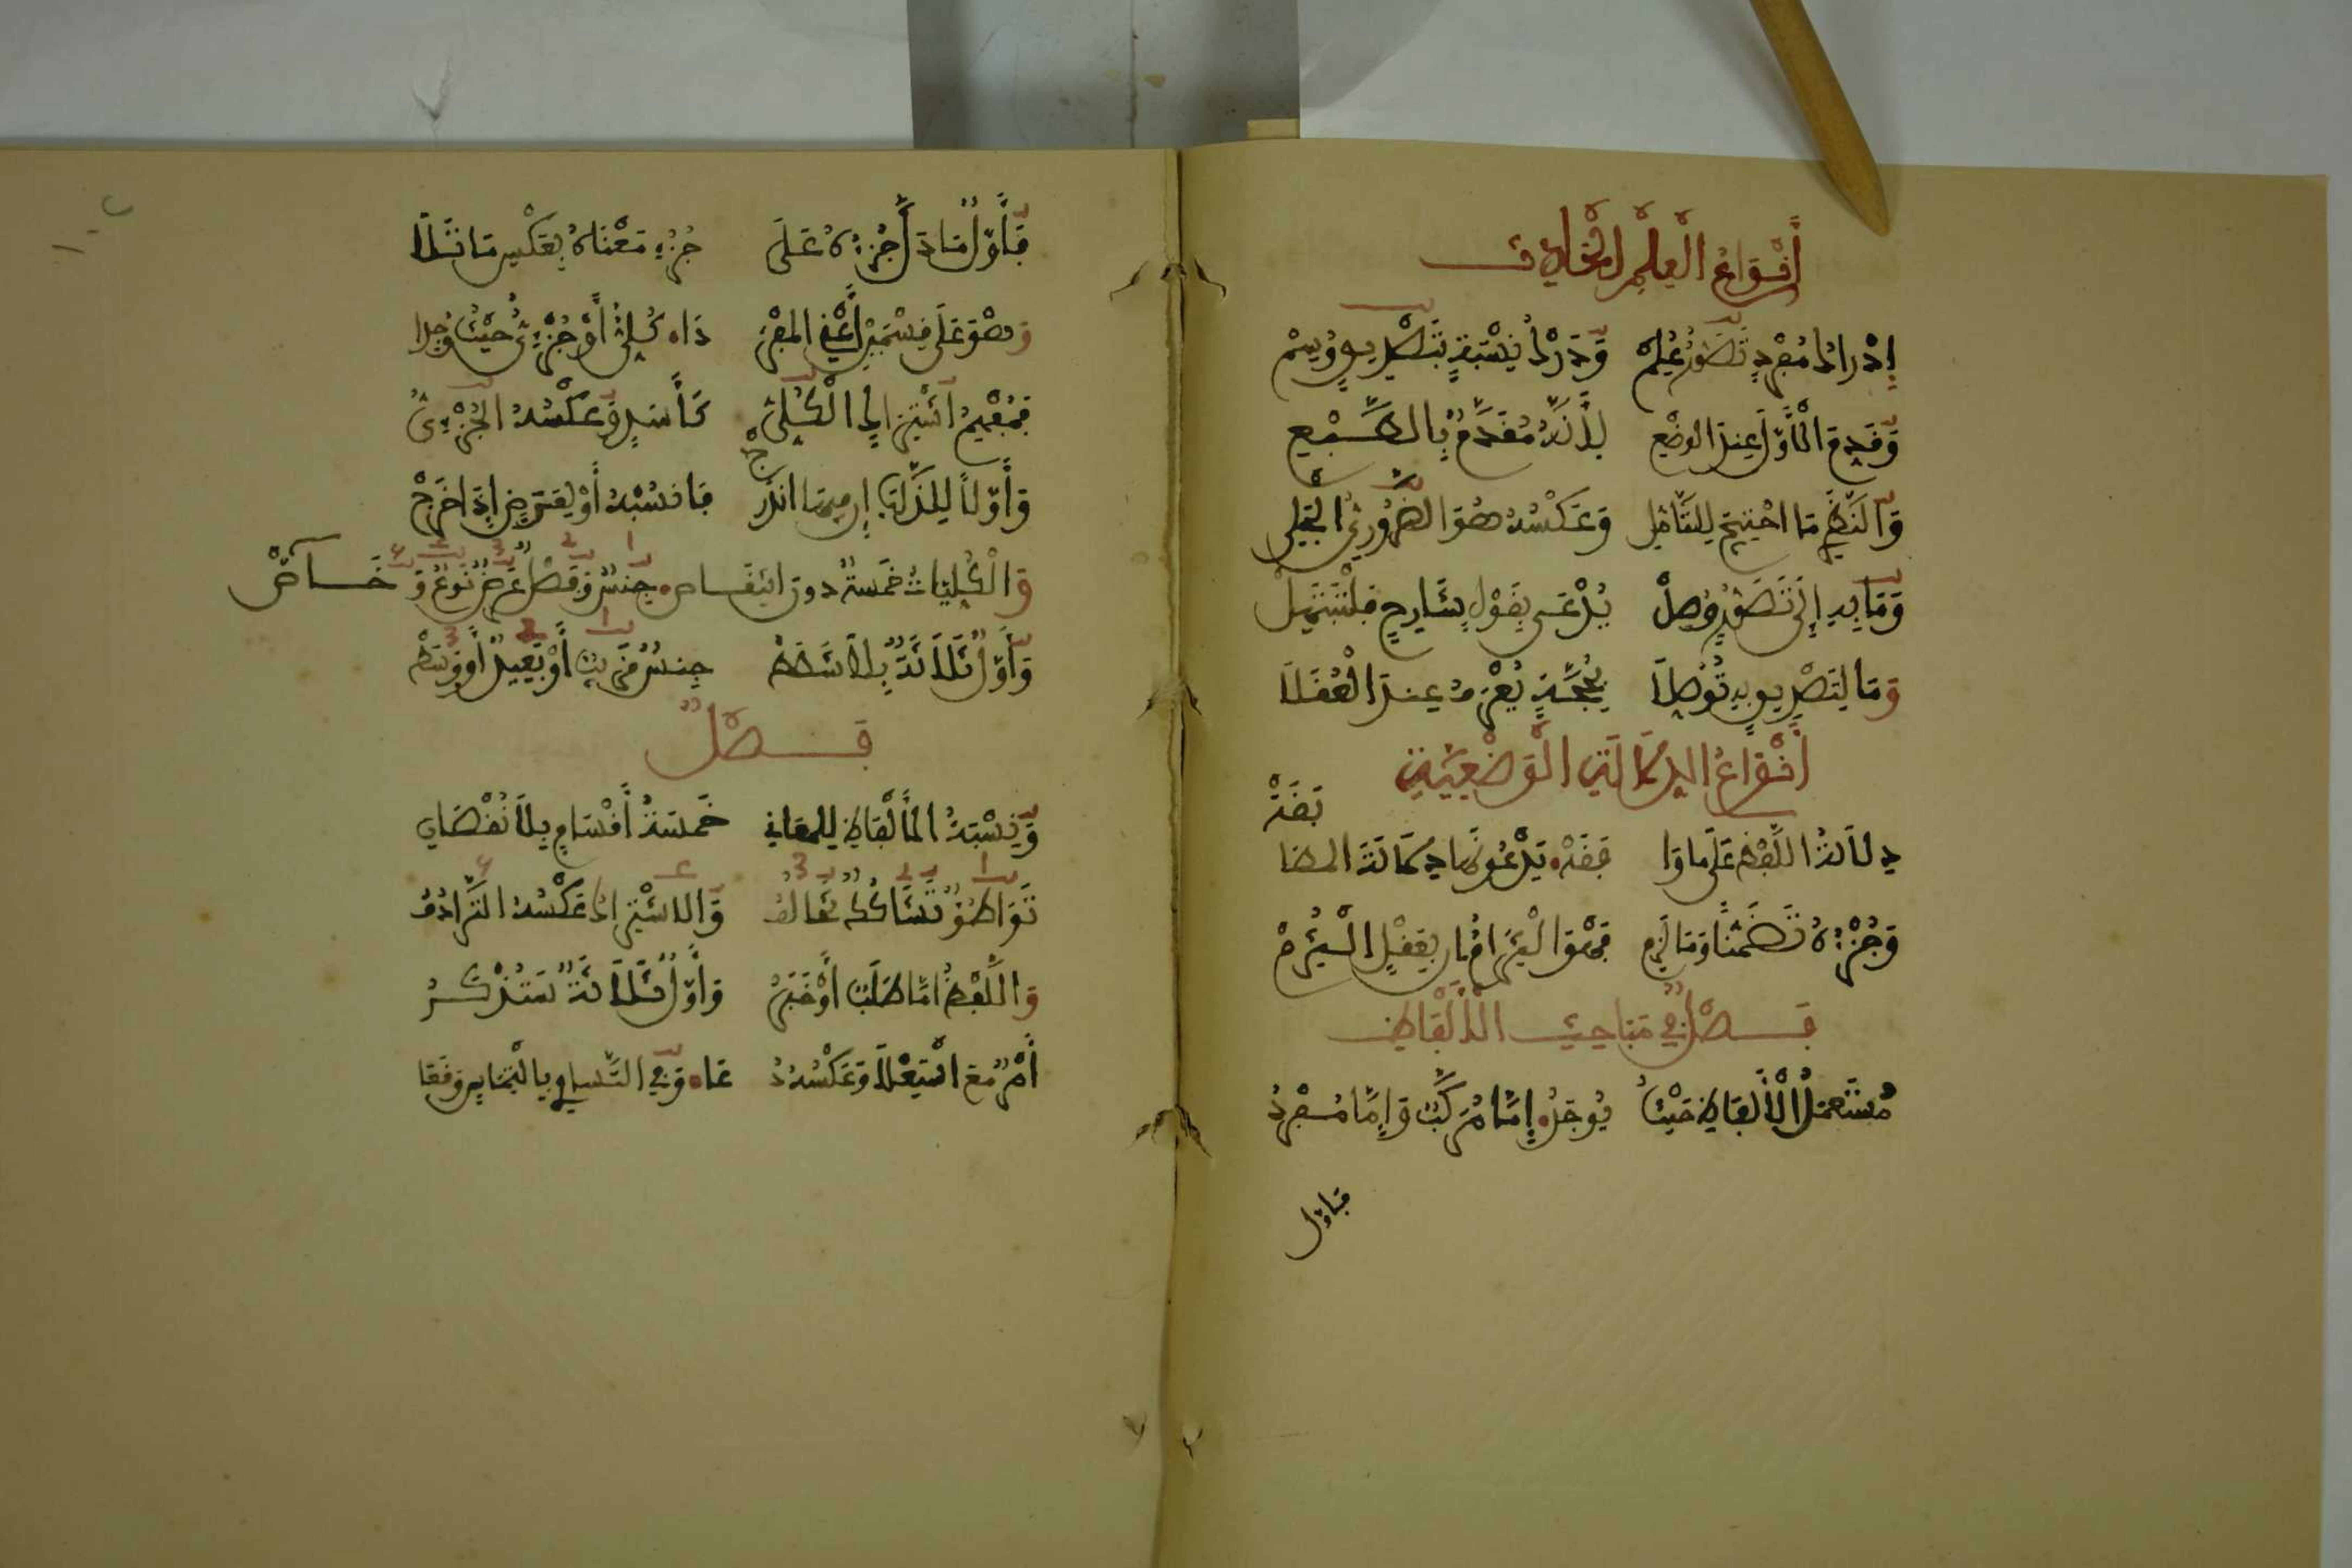 أَنْوَاعُ الْعِلْمِ الْحَادِثِ
إِدْرَاكُ مُفْرَدٍ تَصَوُّرًا عُلِمْ وَدَرْكُ نِسْبَةٍ بِتَصْدِيقٍ وُسِمْ
وَقَدِّمِ الْأَوَّلَ عِنْدَ الْوَضْعِ لِأَنَّهُ مُقَدَّمٌ بِالطَّبْعِ
وَالنَّظَرِي مَا احْتِيجَ لِلتَّأَمُّلِ وَعَكْسُهُ هُوَ الضَّرُورِيُّ الْجَلِي
وَمَا بِهِ إِلَى تَصَوُّرٍ وُصِلْ يُدْعَى بِقَوْلٍ شَارِحٍ فَلْتَبْتَهِلْ
وَمَا لِتَصْدِيقٍ بِهِ تُوُصِّلَا بِحُجَّةٍ يُعْرَفُ عِنْدَ الْعُقَلَا
أَنْوَاعُ الدِّلَالَةِ الْوَضْعِيَّةِ
دِلَالَةُ اللَّفْظِ عَلَى مَا وَافَقَهْ يَدْعُونَهَا دِلَالَةَ الْمُطَابَقَهْ
وَجُزْئِهِ تَضَمُّنًا وَمَا لَزِمْ فَهْوَ الْتِزَامٌ إِنْ بِعَقْلٍ الْتُزِمْ
فَصْلٌ فِي مَبَاحِثِ الْأَلْفَاظِ
مُسْتَعْمَلُ الْأَلْفَاظِ حَيْثُ يُوجَدُ إِمَّا مُرَكَّبٌ وَإِمَّا مُفْرَدُ
فأول
فَأَوَّلٌ مَا دَلَّ جُزْؤُهُ عَلَى جُزْءِ مَعْنَاهُ بِعَكْسِ مَا تَلَا
وَهْوَ عَلَى قِسْمَيْنِ أَعْنِي الْمُفْرَدَا كُلِّيٌّ أَوْ جُزْئِيٌّ حَيْثُ وُجِدَا
فَمُفْهِمُ اشْتِرَاكٍ الْكُلِّيُّ كَأَسَدٍ وَعَكْسُهُ الْجُزْئِيُّ
وَأَوَّلًا لِلذَّاتِ إِنْ فِيهَا انْدَرَجْ فَانْسُبْهُ أَوْ لِعَارِضٍ إِذَا خَرَجْ
وَالْكُلِّيَّاتُ خَمْسَةٌ دُونَ انْتِقَاصْ جِنْسٌ وَفَصْلٌ عَرَضٌ نَوْعٌ وَخَاصْ
وَأَوَّلٌ ثَلَاثَةٌ بِلَا شَطَطْ جِنْسٌ قَرِيبٌ أَوْ بَعِيدٌ أَوْ وَسَطْ
فَصْلٌ
وَنِسْبَةُ الْأَلْفَاظِ لِلْمَعَانِي خَمْسَةُ أَقْسَامٍ بِلَا نُقْصَانِ
تَوَاطُؤٌ تَشَاكُكٌ تَخَالُفُ وَالِاشْتِرَاكُ عَكْسُهُ التَّرَادُفُ
وَاللَّفْظُ إِمَّا طَلَبٌ أَوْ خَبَرُ وَأَوَّلٌ ثَلَاثَةٌ سَتُذْكَرُ
أَمْرٌ مَعَ اسْتِعْلَا وَعَكْسُهُ دُعَا وَفِي التَّسَاوِي فَالْتِمَاسٌ وَقَعَا